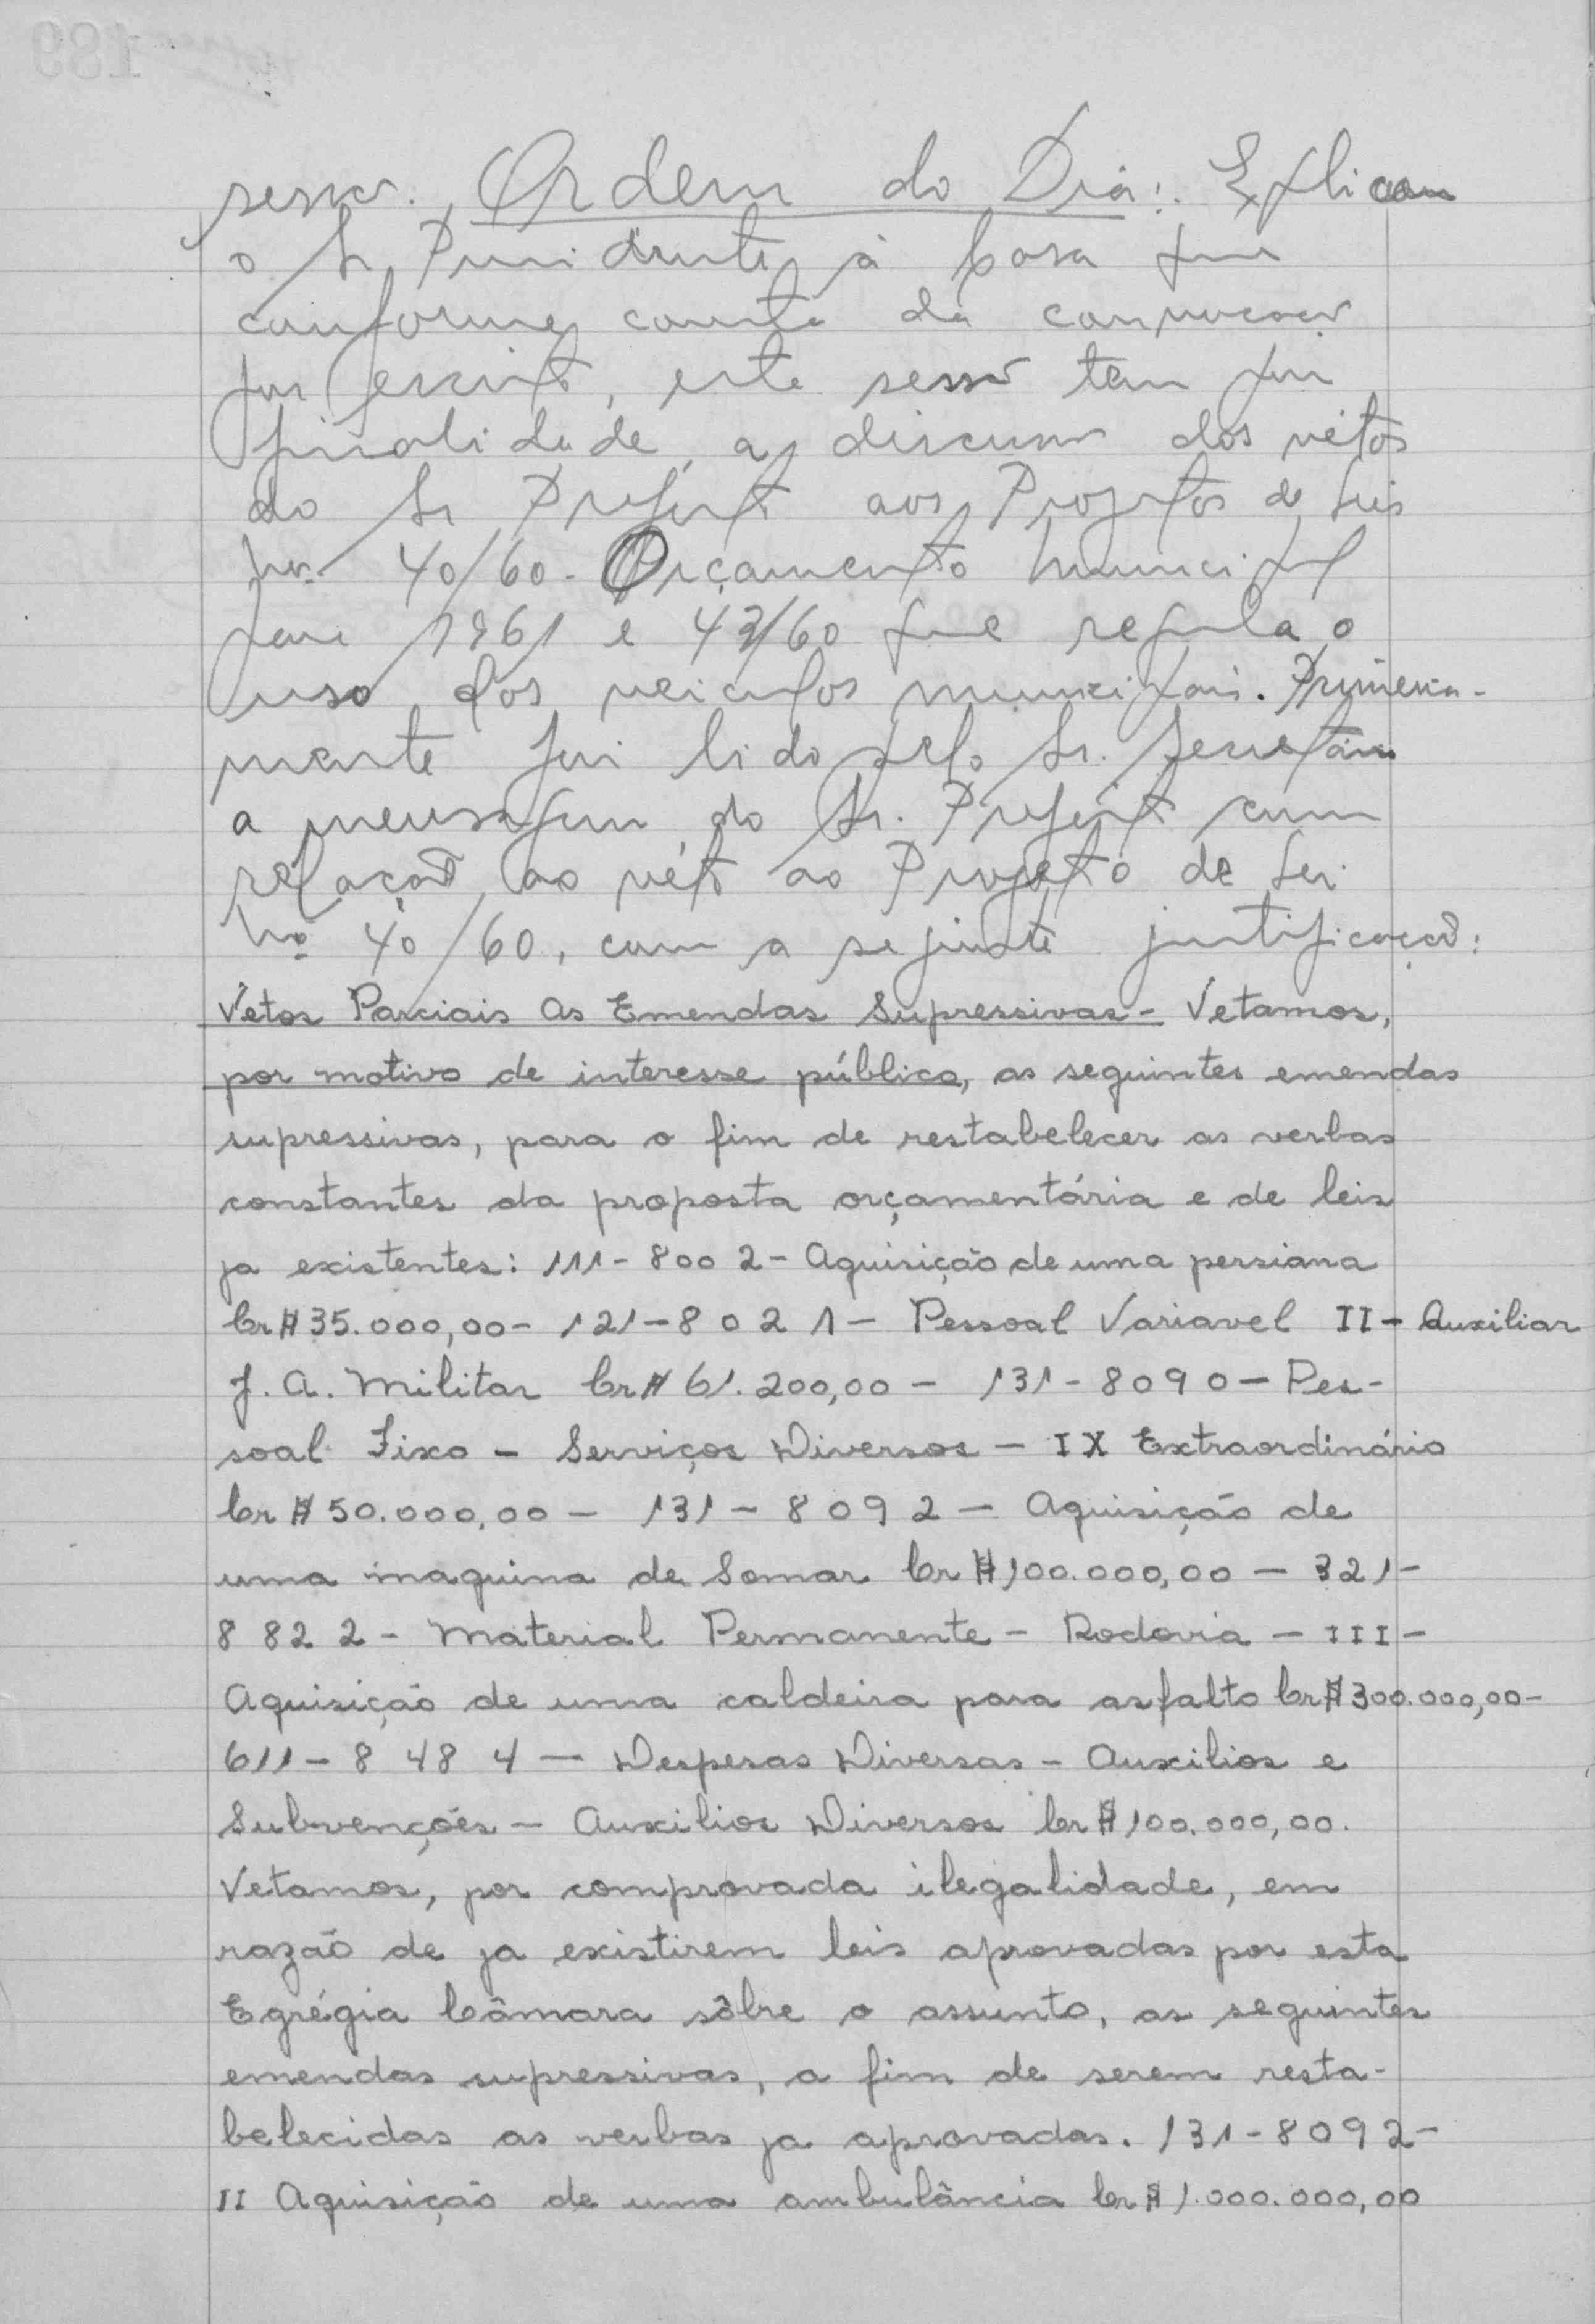 sessão. Ordem do Dia: Explicou
o Sr Presidente à Casa que
conforme consta da convocação
por escrito, esta sessão tem por
finalidade, a discussão dos vétos
do Sr Prefeito aos Projetos de Leis
nº 40/60 - Orçamento Municipal
para 1961 e 43/60 que regula o
uso dos veiculos municipais. Primeira-
mente foi lido pelo Sr. Secretário
a mensagem do Sr. Prefeito com
relação ao véto ao Projeto de Lei
nº 40/60, com a seguinte justificação:
Vétos Parciais as Emendas Supressivas - Vetamos,
por motivo de interesse público, as seguintes emendas
supressivas, para o fim de restabelecer as verbas
constantes da proposta orçamentária e de leis
ja existentes: 111 - 800 2 - Aquisição de uma persiana
Cr$ 35.000,00 - 121 - 802 1 - Pessoal Variavel II - Auxiliar
J. A. Militar Cr$ 61.200,00 - 131 - 8090 - Pes-
soal Fixo - Serviços Diversos - IX Extraordinário
Cr$ 50.000,00 - 131 - 8092 - Aquisição de
uma maquina de Somar Cr$ 100.000,00 - 321 -
8 82 2 - Material Permanente - Rodovia - III -
Aquisição de uma caldeira para asfalto Cr$ 300.000,00 -
611 - 8 48 4 - Despesas Diversas - Auxilios e
Subvenções - Auxilios Diversos Cr$ 100.000,00.
Vetamos, por comprovada ilegalidade, em
razão de ja existirem leis aprovadas por esta
Egrégia Câmara sôbre o assunto, as seguintes
emendas supressivas, a fim de serem resta-
belecidas as verbas ja aprovadas. 131 - 8092 -
II Aquisição de uma ambulância Cr$ 1.000.000,00